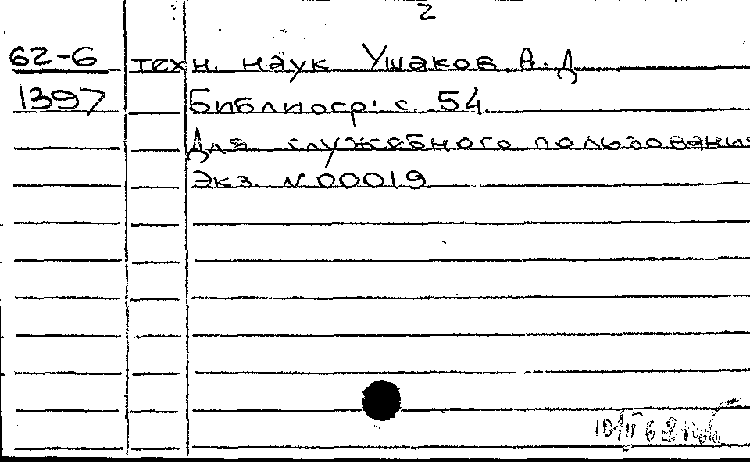 2
62-6 техн. наук Ушаков А.Д
1397 Библиогр: с. 54.
Для служебного пользования
Экз. N 00019